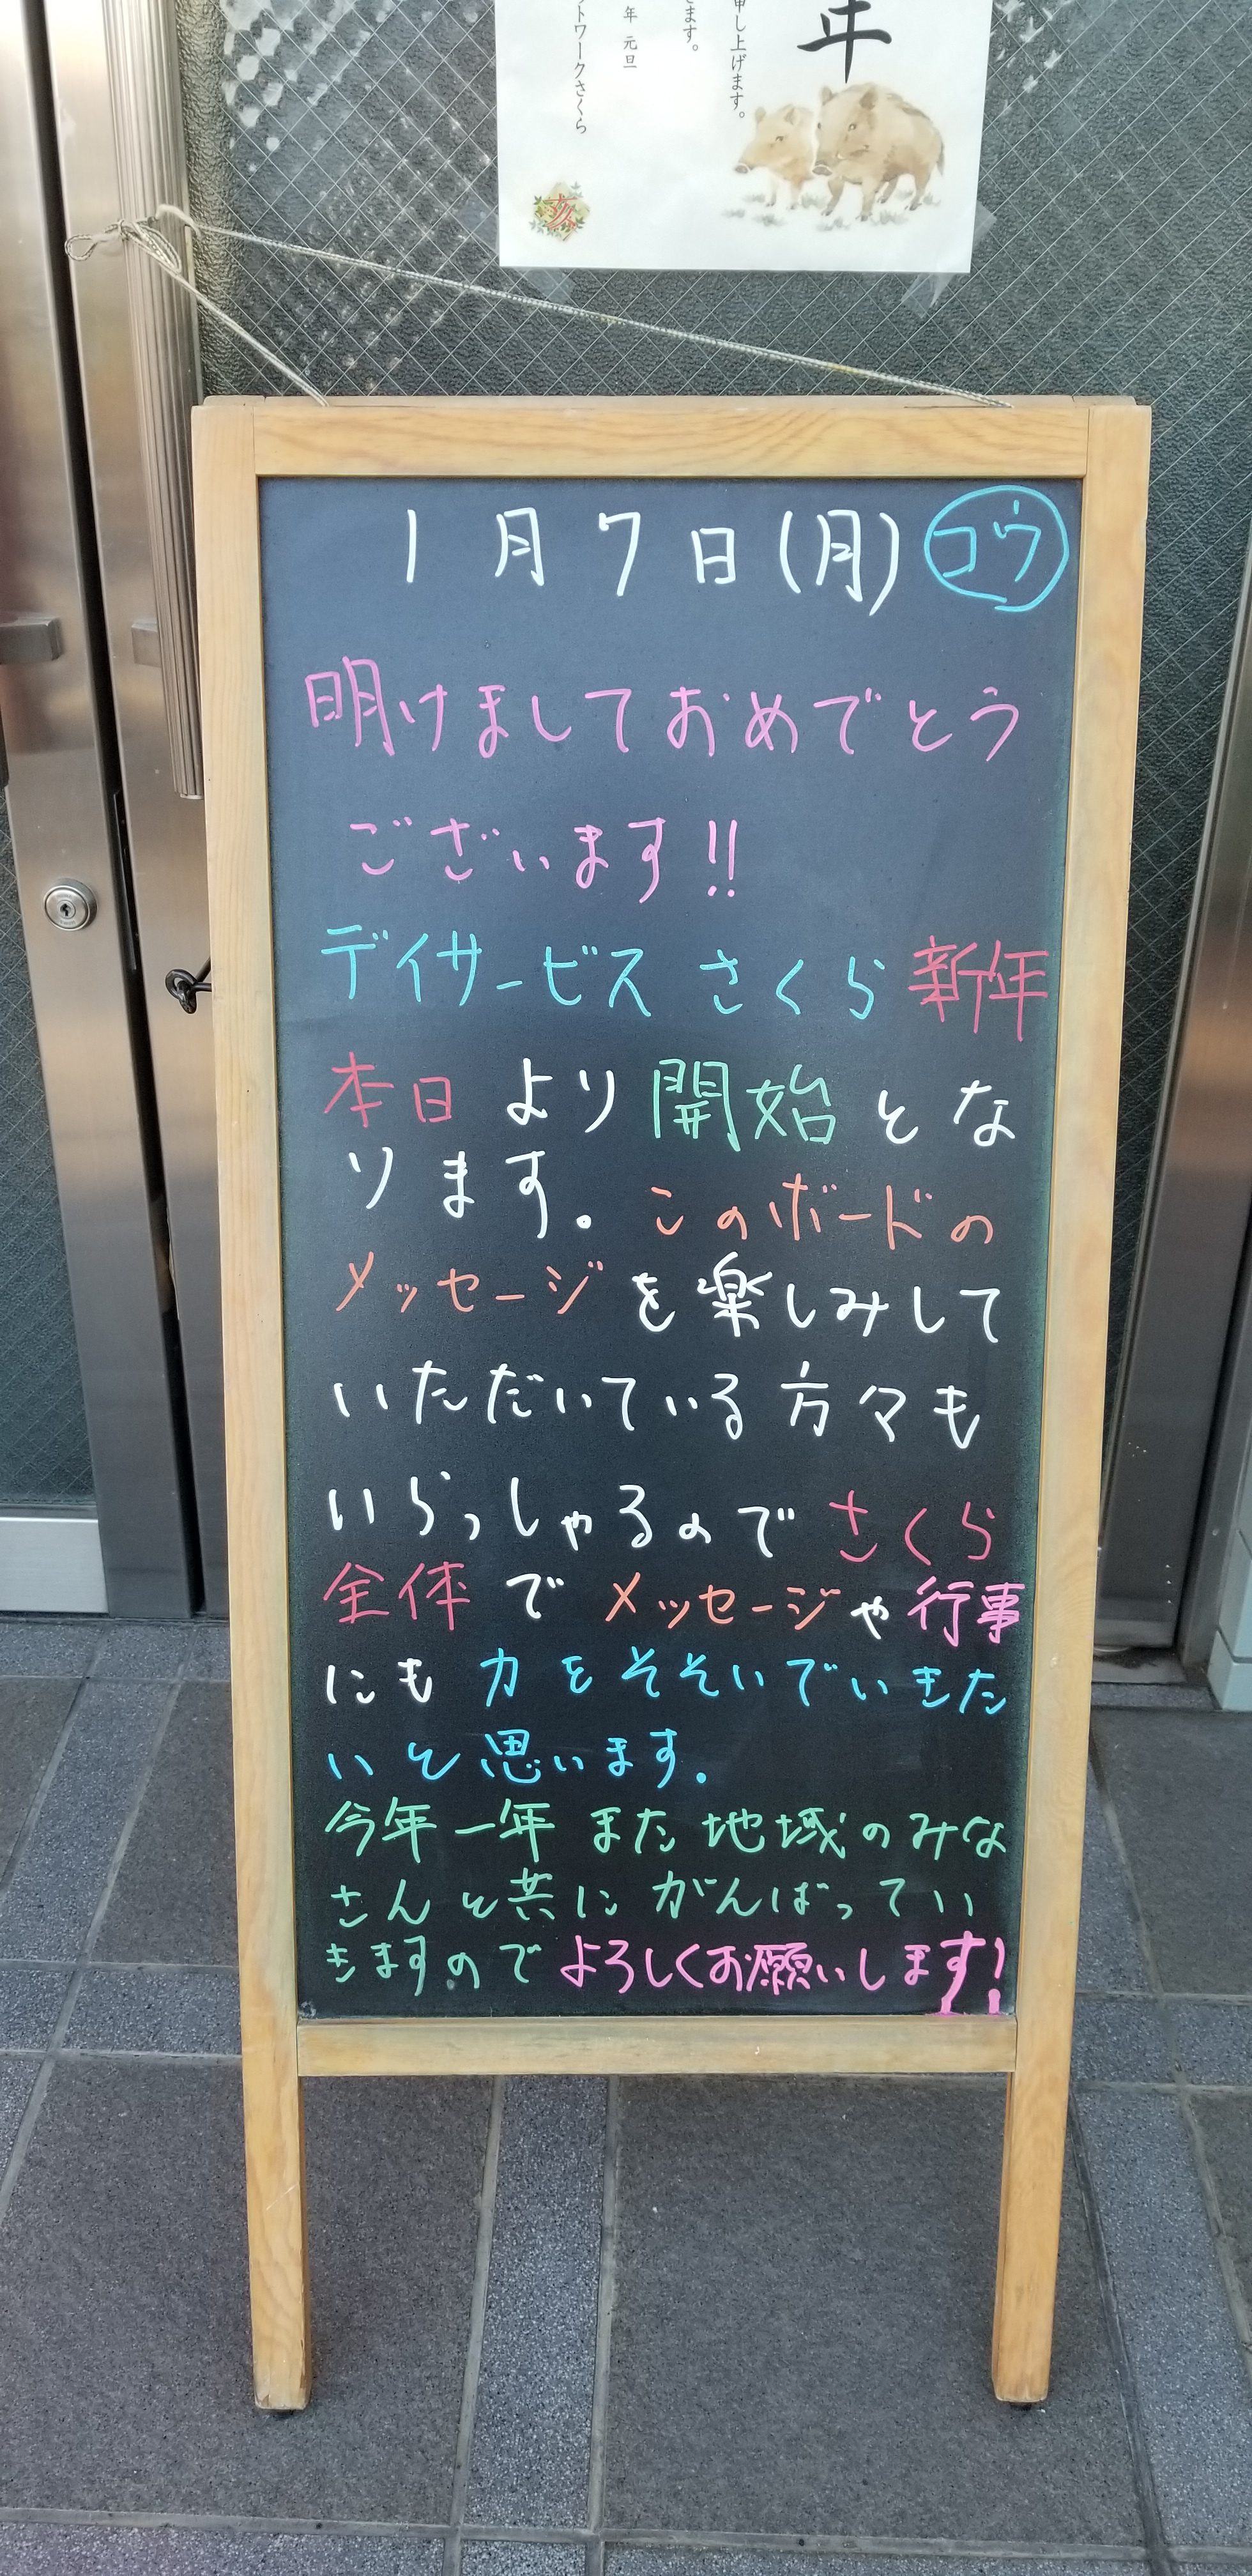 年
申し上げます。
ます。
年 元旦
ットワークさくら
亥
1月7日(月) コウ
明けましておめでとう
ございます!!
デイサービス さくら 新年
本日 より 開始 とな
ります。このボードの
メッセージを楽しみして
いただいている方々も
いらっしゃるので さくら
全体 で メッセージや行事
にも 力をそそいでいきた
いと思います.
今年一年 また 地域のみな
さんと共に がんばってい
きますので よろしくお願いします!